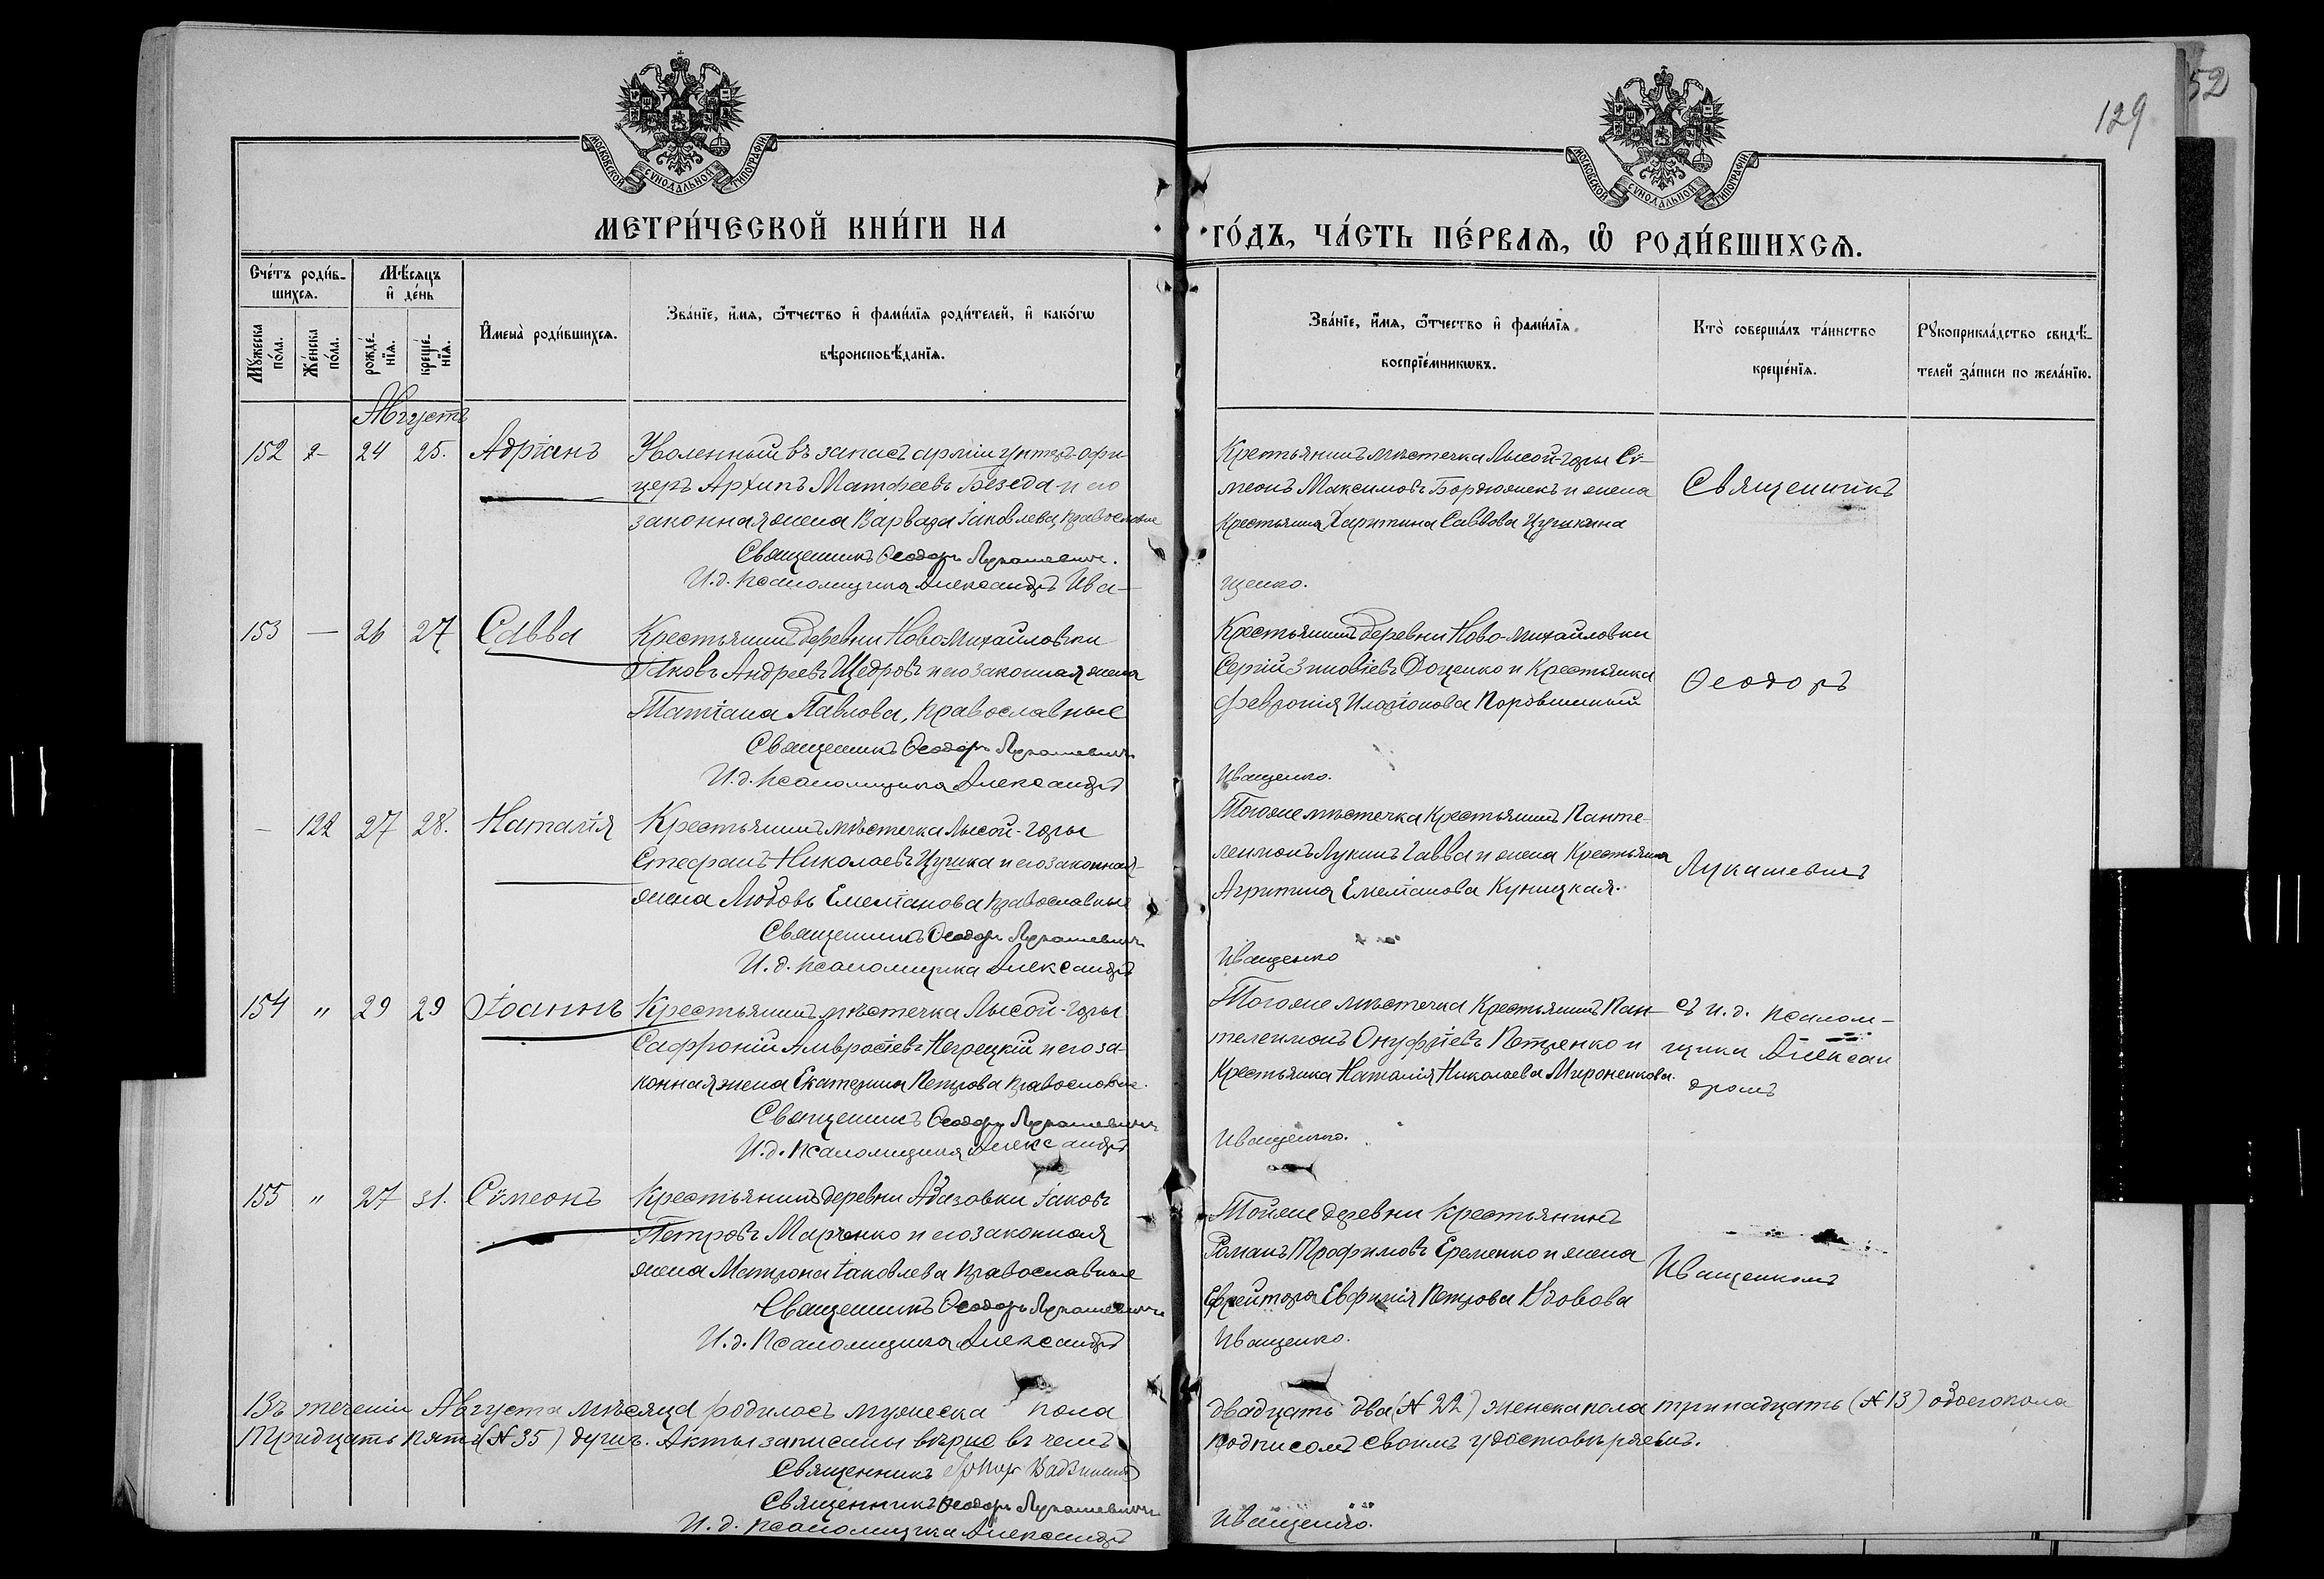 52
129
МОСКОВСКОЙ СѴНОДАЛЬНОЙ ТИПОГРАФІИ
МОСКОВСКОЙ СѴНОДАЛЬНОЙ ТИПОГРАФІИ
МЕТРИ́ЧЕСКОЙ КНИ́ГИ НА ГО́ДЪ, ЧА́СТЬ ПЕ́РВАѦ, Ѡ҆ РОДИ́ВШИХСѦ.
Сче́тъ роди́в-
шихсѧ.
Мꙋ́жеска
по́ла.
Же́нска
по́ла.
Мѣ́сяцъ
и҆ де́нь
рожде́-
нїѧ.
креще́-
нїѧ.
И҆мена̀ роди́вшихсѧ.
Зва́нїе, и҆́мѧ, ѻ҆́тчество и҆ фами́лїѧ роди́телей, и҆ како́гѡ
вѣроисповѣ́данїѧ.
Зва́нїе, и҆́мѧ, ѻ҆́тчество и҆ фами́лїѧ
воспрїе́мникѡвъ.
Кто̀ соверша́лъ та́инство
креще́нїѧ.
Рꙋкоприкла́дство свидѣ́-
телей за́писи по жела́нїю.
Августъ
152 24 25. Адріанъ
Уволенный въ запасъ арміи унтеръ-офи
церъ Архипъ Матфеевъ Беззеда и его
законная жена Варвара Іаковлева, православные
Священникъ Ѳеодоръ Лукашевичъ.
И.д. псаломщика Александръ Ива-
Крестьянинъ мѣстечка Лысой-горы Сѵ-
меонъ Максимовъ Бордюжекъ и жена
крестьянина Харитина Саввова Цушкина
щенко.
Священникъ
153 — 26 27 Савва
Крестьянинъ деревни Ново-Михайловки
Іаковъ Андреевъ Щедровъ и его законная жена
Татіана Павлова, православные
Священникъ Ѳеодоръ Лукашевичъ
И.д. псаломщика Александръ
Крестьянинъ деревни Ново-Михайловки
Сергій Зиновіевъ Доценко и крестьянка
Февронія Иларіонова
Иващенко.
Ѳеодоръ
— 122 27 28. Наталія
Крестьянинъ мѣстечка Лысой-горы
Стефанъ Николаевъ Цушка и его законная
жена Любовь Емеліанова православные
Священникъ Ѳеодоръ Лукашевичъ
И.д. псаломщика Александръ
Того же мѣстечка крестьянинъ Панте-
леимонъ Лукинъ Гавва и жена крестьянина
Емеліанова Куницкая.
Иващенко
Лукашевичъ
154 " 29 29 Іоаннъ
Крестьянинъ мѣстечка Лысой-горы
Сафроній Амвросіевъ Негрецкій и его за-
конная жена Екатерина Петрова православные.
Священникъ Ѳеодоръ Лукашевичъ
И.д. псаломщика Александръ
Того же мѣстечка крестьянинъ Пан-
телеимонъ Онуфріевъ Петренко и
крестьянка Наталія Николаева Мироненкова.
Иващенко.
съ и.д. псалом-
щика Алексан
дромъ
155 " 27 31. Сѵмеонъ
Крестьянинъ деревни Абазовки Іаковъ
Петровъ Марченко и его законная
жена Матрона Іаковлева православные
Священникъ Ѳеодоръ Лукашевичъ
И.д. Псаломщика Александръ
Той же деревни крестьянинъ
Романъ Трофимовъ Еременко и жена
Ефрейтора Евфимія Петрова Удовова
Иващенко.
Иващенкомъ
Въ теченіи Августа мѣсяца родилось мужеска пола двадцать два (№ 22) женска пола тринадцать (№ 13) обоего пола
тридцать пять (№ 35) душъ. Акты записаны вѣрно въ чемъ подписомъ своимъ удостовѣряемъ.
Священникъ
Священникъ Ѳеодоръ Лукашевичъ
И.д. псаломщика Александръ Иващенко.